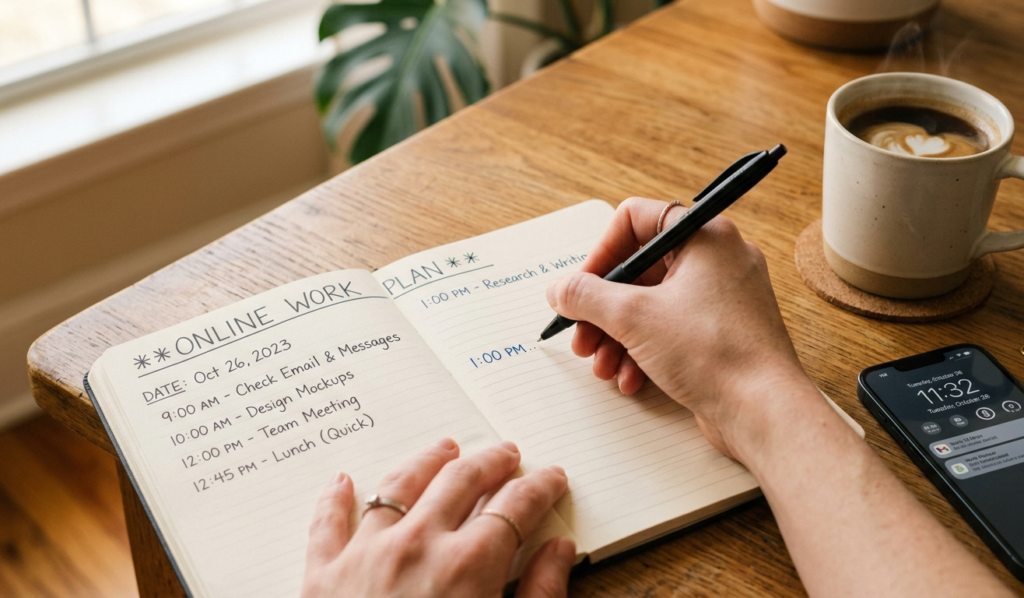 **ONLINE WORK PLAN**
DATE: Oct 26, 2023
9:00 AM - Check Email & Messages
10:00 AM - Design Mockups
12:00 PM - Team Meeting
12:45 PM - Lunch (Quick)
1:00 PM - Research & Writin
1:00 PM...
Tuesday, October 26
11:32
Tuesday, October 26